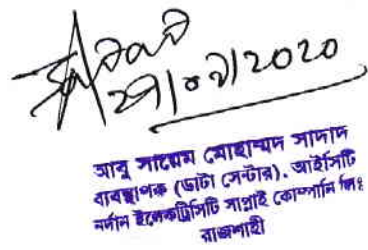 আবু সায়েম মোহাম্মদ সাদাদ
ব্যবস্থাপক (ডাটা সেন্টার). আইসিটি
নর্দান ইলেকট্রিসিটি সাপ্লাই কোম্পানি লিঃ
রাজশাহী